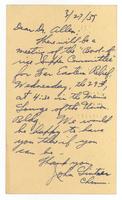 3/27/51
Dear Dr. Allen:
There will be a
meeting of the
Committee"
for Far Eastern Relief
Wednesday, the 29th,
at 4:30 in the Men's
Lounge of the Union
Bldg. We would
be happy to have
you there if you
can be.
Thank you,
John
Chmn.